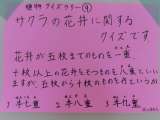 植物クイズラリー④
サクラの花弁に関する
クイズです
花弁が五枚までのものを一重、
十枚以上の花弁をもつものを八重といい
ますが、五枚から十枚のものを何というか
1 半七重 2 半八重 3 半九重